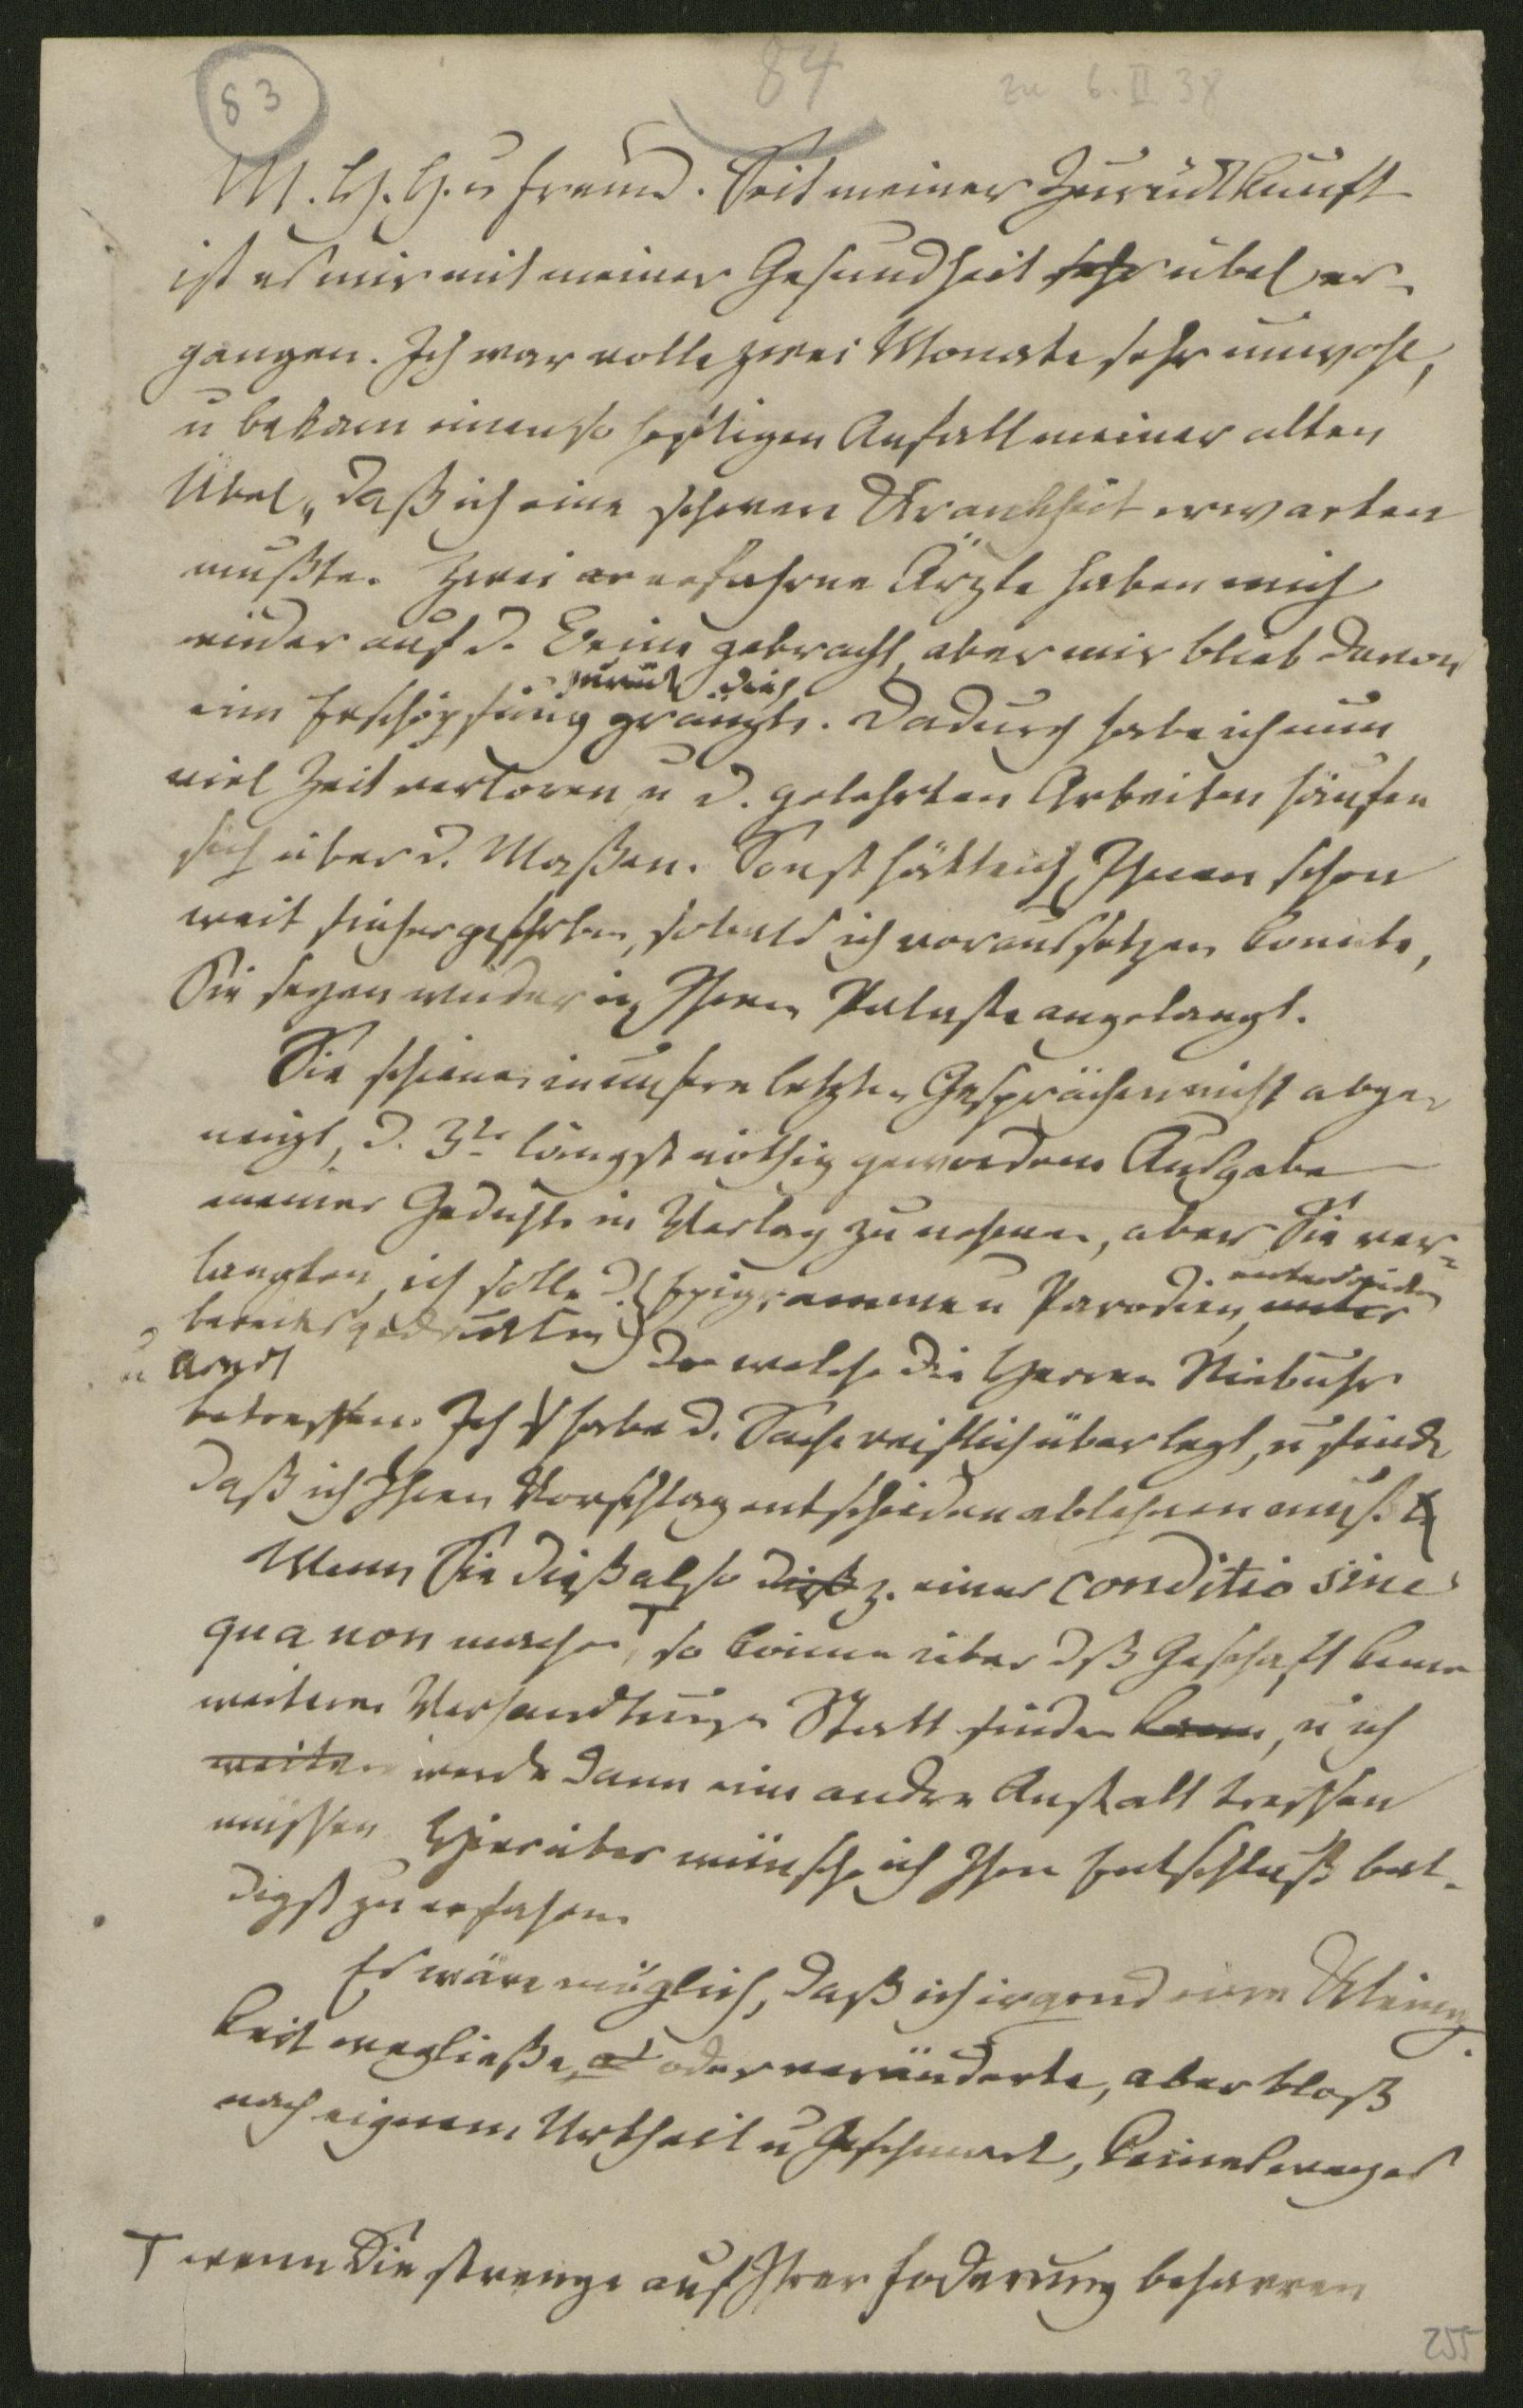 83
84
zu 6. II 38
M. H. H. u Freund. Seit meiner Zurückkunft
ist es mir mit meiner Gesundheit sehr übel er-
gangen. Ich war volle zwei Monate sehr unwohl,
u bekam einen so heftigen Anfall meiner alten
Übel, daß ich eine schwere Krankheit erwarten
mußte. Zwei erfahrne Ärzte haben mich
wieder auf d. Beine gebracht, aber mir blieb davon
eine Erschöpfung zurück die
gränzte. Dadurch habe ich nun
viel Zeit verloren u d. gelehrten Arbeiten häufen
sich über d. Maßen. Sonst hätte ich Ihnen schon
weit früher geschrieben, sobald ich voraussetzen konnte,
Sie seyen wieder in Ihrem Palaste angelangt.
Sie schienen in unsern letzten Gesprächen nicht abge-
neigt, d. 3te längst nöthig gewordene Ausgabe
meiner Gedichte in Verlag zu nehmen, aber Sie ver-
langten, ich solle d. Epigramme u Parodien, unter
bereits gedruckten
unterdrücken
u Arndt
die welche die Herren Niebuhr
betreffen. Ich habe d. Sache reiflich überlegt, u finde
daß ich Ihren Vorschlag entschieden ablehnen muß.
Wenn Sie dieß also dieß z. einer conditio sine
qua non machen, so könne über dß Geschäft keine
weitere Verhandlungen Statt finden kann, u ich
weitere werde dann eine andre Anstalt treffen
müssen Hierüber wünsche ich Ihren Entschluß bal-
digst zu erfahren.
Es wäre möglich, daß ich irgend eine Kleinig-
keit wegließe, oder veränderte, aber bloß
nach eignem Urtheil u Geschmack, keineswegs
T wenn Sie strenge auf Ihrer Foderung beharren
255